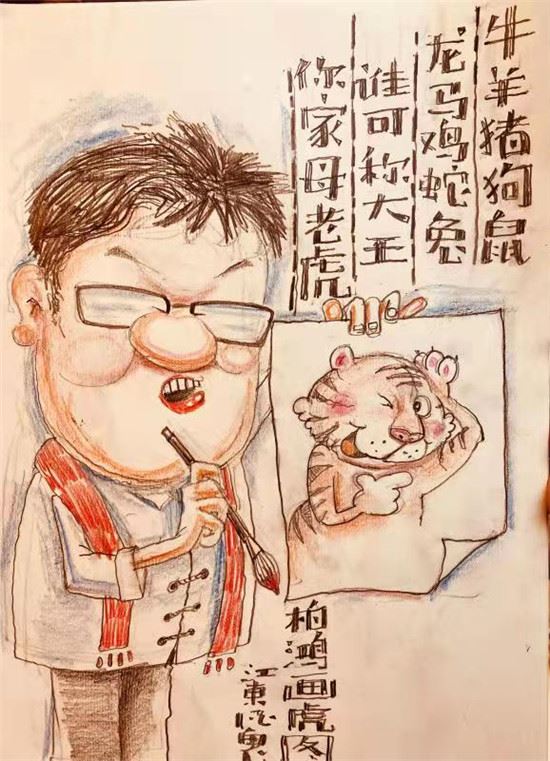 牛羊猪狗鼠
龙马鸡蛇兔
谁可称大王
你家母老虎
柏鸿画虎图
江東